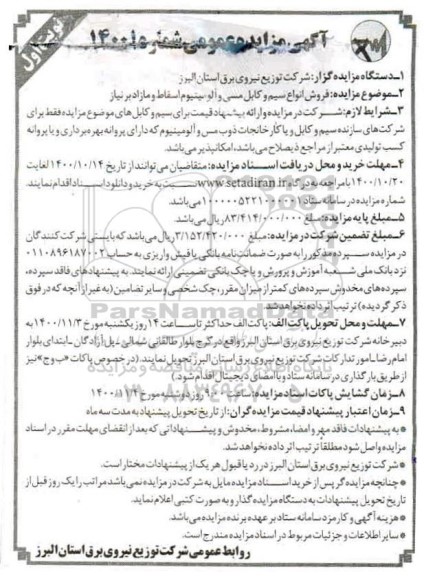 نوبت اول
آگهی مزایده عمومی شماره ۱-۱۴۰۰
۱ـدستگاه مزایده گزار: شرکت توزیع نیروی برق استان البرز
۲ـموضوع مزایده: فروش انواع سیم و کابل مسی و آلومینیوم اسقاط و مازاد بر نیاز
۳ـشرایط لازم: شرکت در مزایده و ارائه پیشنهاد قیمت برای سیم و کابل های موضوع مزایده فقط برای
شرکت های سازنده سیم و کابل و یا کارخانجات ذوب مس و آلومینیوم که دارای پروانه بهره برداری و یا پروانه
کسب تولیدی معتبر از مراجع ذیصلاح می باشد، امکانپذیر می باشد.
۴ـمهلت خرید و محل دریافت اسناد مزایده: متقاضیان می توانند از تاریخ ۱۴۰۰/۱۰/۱۴ لغایت
۱۴۰۰/۱۰/۲۰ با مراجعه به درگاه www.setadiran.ir نسبت به خرید و دانلود اسناد اقدام نمایند.
شماره مزایده در سامانه ستاد می باشد.
۵ـمبلغ پایه مزایده: مبلغ ۸۳/۴۱۴/۰۰۰/۰۰۰ ریال می باشد.
۶ـمبلغ تضمین شرکت در مزایده: مبلغ ۳/۱۵۲/۴۲۰/۰۰۰ ریال می باشد که بایستی شرکت کنندگان
در مزایده سپرده مذکور را به صورت ضمانت نامه بانکی یا فیش واریزی به حساب ۰۱۱۰۸۹۶۱۸۷۰۰۲
نزد بانک ملی شعبه آموزش و پرورش و یا چک بانکی تضمینی ارائه نمایند. به پیشنهادهای فاقد سپرده،
سپرده های مخدوش سپرده های کمتر از میزان مقرر، چک شخصی و سایر تضامین (به غیر از آنچه که در فوق
ذکر گردیده) ترتیب اثر داده نخواهد شد.
۷ـمهلت و محل تحویل پاکت الف: پاکت الف حداکثر تا ساعت ۱۴ روز یکشنبه مورخ ۱۴۰۰/۱۱/۳ به
دبیرخانه شرکت توزیع نیروی برق استان البرز واقع در کرج بلوار طالقانی شمالی نبش پل آزادگان ـ ابتدای بلوار
امام رضا ـ امور تدارکات شرکت توزیع نیروی برق استان البرز تحویل نمایند. (در خصوص پاکات «ب و ج» نیز
از طریق بارگذاری در سامانه ستاد و با امضای دیجیتال اقدام شود.)
۸ـزمان گشایش پاکات اسناد مزایده: ساعت ۹:۰۰ روز دوشنبه مورخ ۱۴۰۰/۱۱/۴
۹ـزمان اعتبار پیشنهاد قیمت مزایده گران: از تاریخ تحویل پیشنهاد به مدت سه ماه
* به پیشنهادات فاقد مهر و امضاء، مشروط، مخدوش و پیشنهاداتی که بعد از انقضای مهلت مقرر در اسناد
مزایده واصل شود مطلقاً ترتیب اثر داده نخواهد شد.
* شرکت توزیع نیروی برق استان البرز در رد یا قبول هر یک از پیشنهادات مختار است.
* چنانچه مزایده گر پس از خرید اسناد مزایده مایل به شرکت در مزایده نمی باشد مراتب را یک روز قبل از
تاریخ تحویل پیشنهادات به دستگاه مزایده گذار و به صورت کتبی اعلام نماید.
* هزینه آگهی و کارمزد سامانه ستاد بر عهده برنده مزایده می باشد.
* سایر اطلاعات و جزئیات مربوط در اسناد مزایده مندرج است.
روابط عمومی شرکت توزیع نیروی برق استان البرز
ParsNamadData
پایگاه اطلاع رسانی مناقصه و مزایده